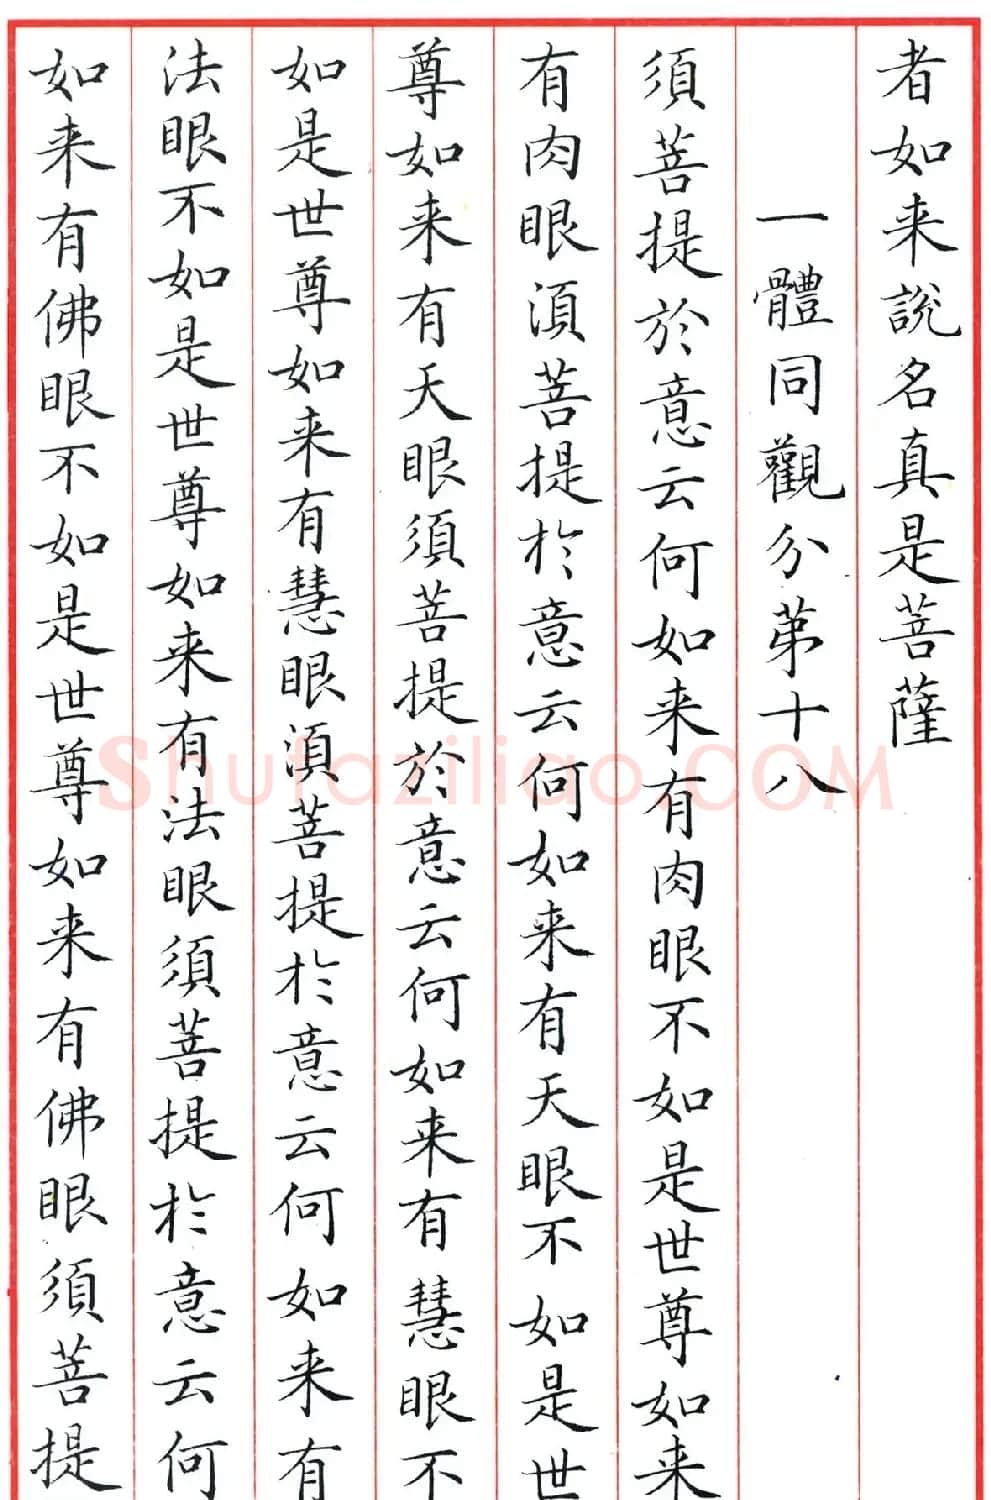 者如来説名真是菩薩
一體同觀分苐十八
須菩提於意云何如来有肉眼不如是世尊如来
有肉眼湏菩提扵意云何如来有天眼不如是世
尊如来有天眼須菩提於意云何如来有慧眼不
如是世尊如来有慧眼湏菩提扵意云何如来有
法眼不如是世尊如来有法眼須菩提扵意云何
如来有佛眼不如是世尊如来有佛眼須菩提
Shufaziliao.COM